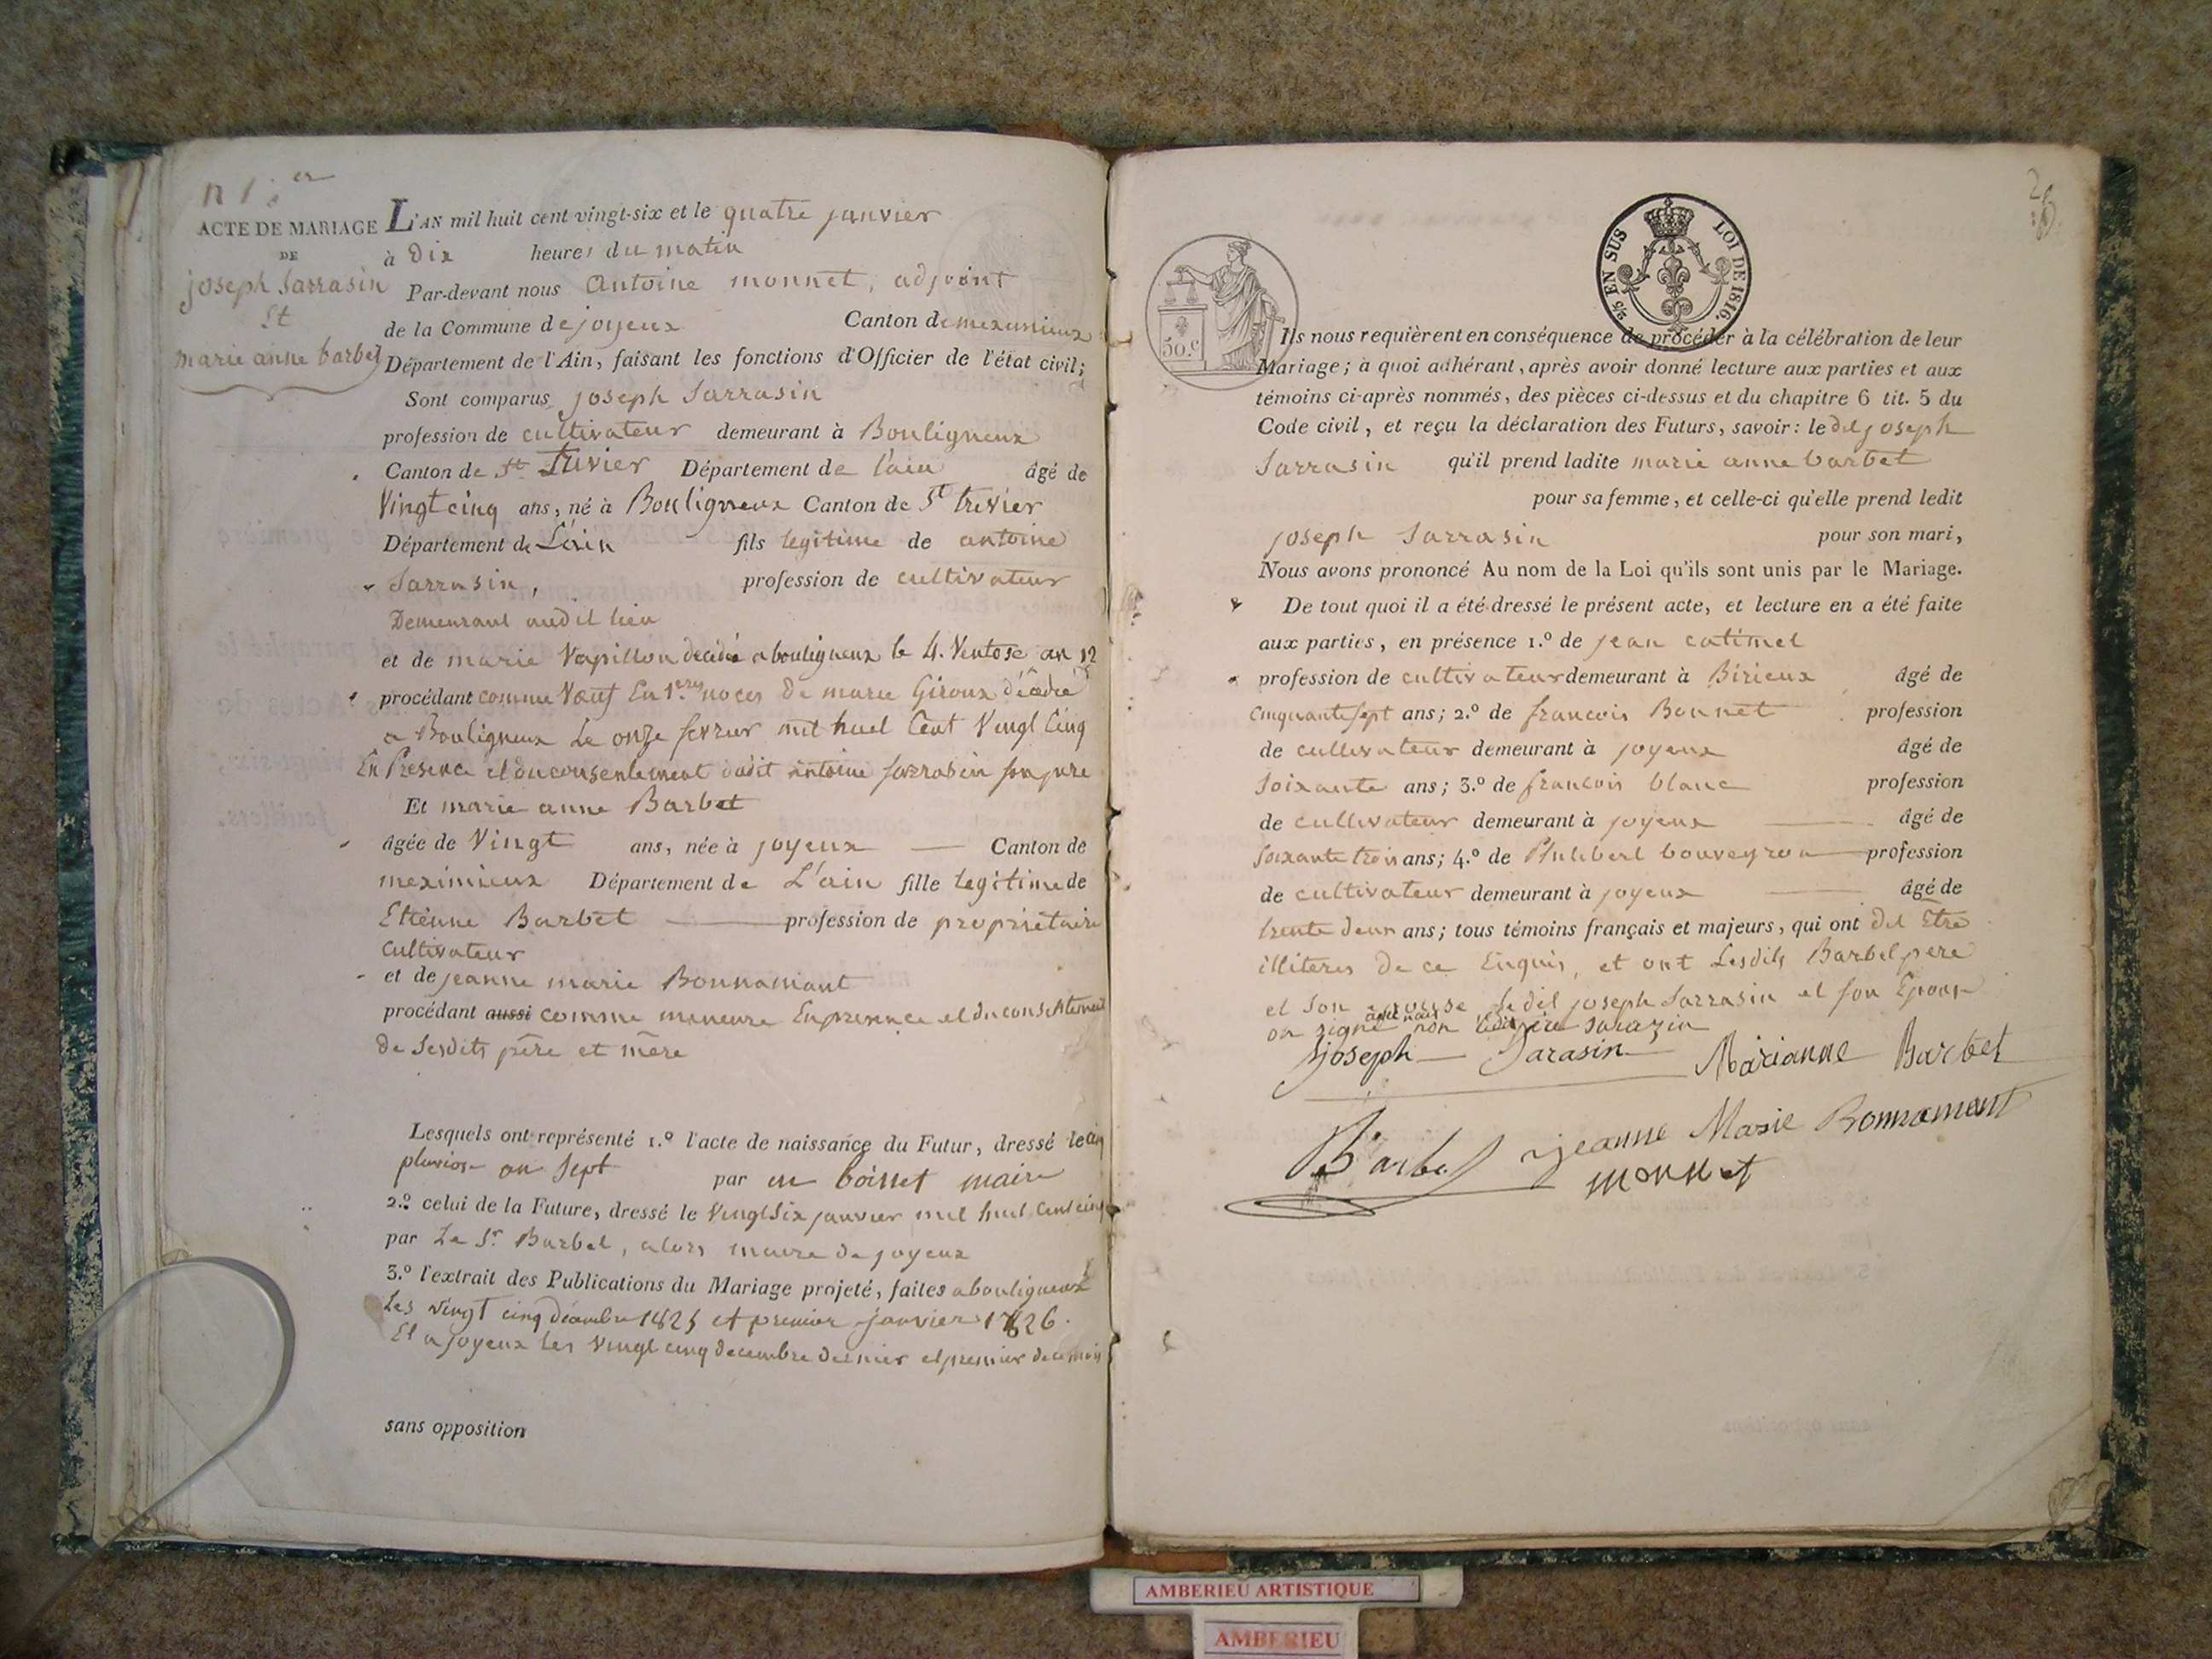 n 1.er
ACTE DE MARIAGE
DE
joseph Sarrasin
Et
marie anne barbet
L'AN mil huit cent vingt-six et le quatre janvier
à dix heures du matin
Par-devant nous Antoine monnet, adjoint
de la Commune de joyeux Canton de meximieux
Département de l'Ain, faisant les fonctions d'Officier de l'état civil;
Sont comparus joseph Sarrasin
profession de cultivateur demeurant à Bouligneux
Canton de St Trivier Département de l'ain âgé de
Vingt cinq ans, né à Bouligneux Canton de St trivier
Département de L'ain fils legitime de antoine
Sarrasin, profession de cultivateur
Demeurant audit lieu
et de marie Vapillon décédée a bouligneux le 4. Ventose an 12
procédant comme Vœuf En 1eres noces de marie Giroux décédée
a Bouligneux Le onze fevrier mil huit Cent Vingt Cinq
En Presence et du consentement dudit antoine sarrasin son pere
Et marie anne Barbet
âgée de Vingt ans, née à joyeux Canton de
meximieux Département de L'ain fille legitime de
Etienne Barbet profession de propriétaire
cultivateur
et de jeanne marie Bonnamant
procédant aussi comme mineure En presence et du consentement
de Sesdits père et mère
Lesquels ont représenté 1.º l'acte de naissance du Futur, dressé le cinq
pluviose an sept par boisset maire
2.º celui de la Future, dressé le Vingt Six janvier mil huit Cent cinq
par Le Sr Barbet, alors maire de joyeux
3.º l'extrait des Publications du Mariage projeté, faites a bouligneux
Les vingt cinq décembre 1825 et premier janvier 1826.
Et a joyeux les Vingt cinq decembre dernier et premier de ce mois
sans opposition
29
25 EN SUS LOI DE 1816.
50.c
Ils nous requièrent en conséquence de procéder à la célébration de leur
Mariage; à quoi adhérant, après avoir donné lecture aux parties et aux
témoins ci-après nommés, des pièces ci-dessus et du chapitre 6 tit. 5 du
Code civil, et reçu la déclaration des Futurs, savoir: le dit joseph
Sarrasin qu'il prend ladite marie anne barbet
pour sa femme, et celle-ci qu'elle prend ledit
joseph Sarrasin pour son mari,
Nous avons prononcé Au nom de la Loi qu'ils sont unis par le Mariage.
De tout quoi il a été dressé le présent acte, et lecture en a été faite
aux parties, en présence 1.º de jean catimel
profession de cultivateur demeurant à Birieux âgé de
cinquante sept ans; 2.º de francois Bonnet profession
de cultivateur demeurant à joyeux âgé de
Soixante ans; 3.º de francois blanc profession
de cultivateur demeurant à joyeux âgé de
soixante trois ans; 4.º de Philibert bouveyron profession
de cultivateur demeurant à joyeux âgé de
trente deux ans; tous témoins français et majeurs, qui ont dit Etre
illiteres de ce Enquis, et ont Lesdits Barbet pere
et Son epouse Ledit joseph Sarrasin et son Epouse
on signé avec nous non ledit père sarazin
joseph Sarasin Marianne Barbet
Barbet jeanne Marie Bonnamant
monnet
AMBERIEU ARTISTIQUE
AMBERIEU